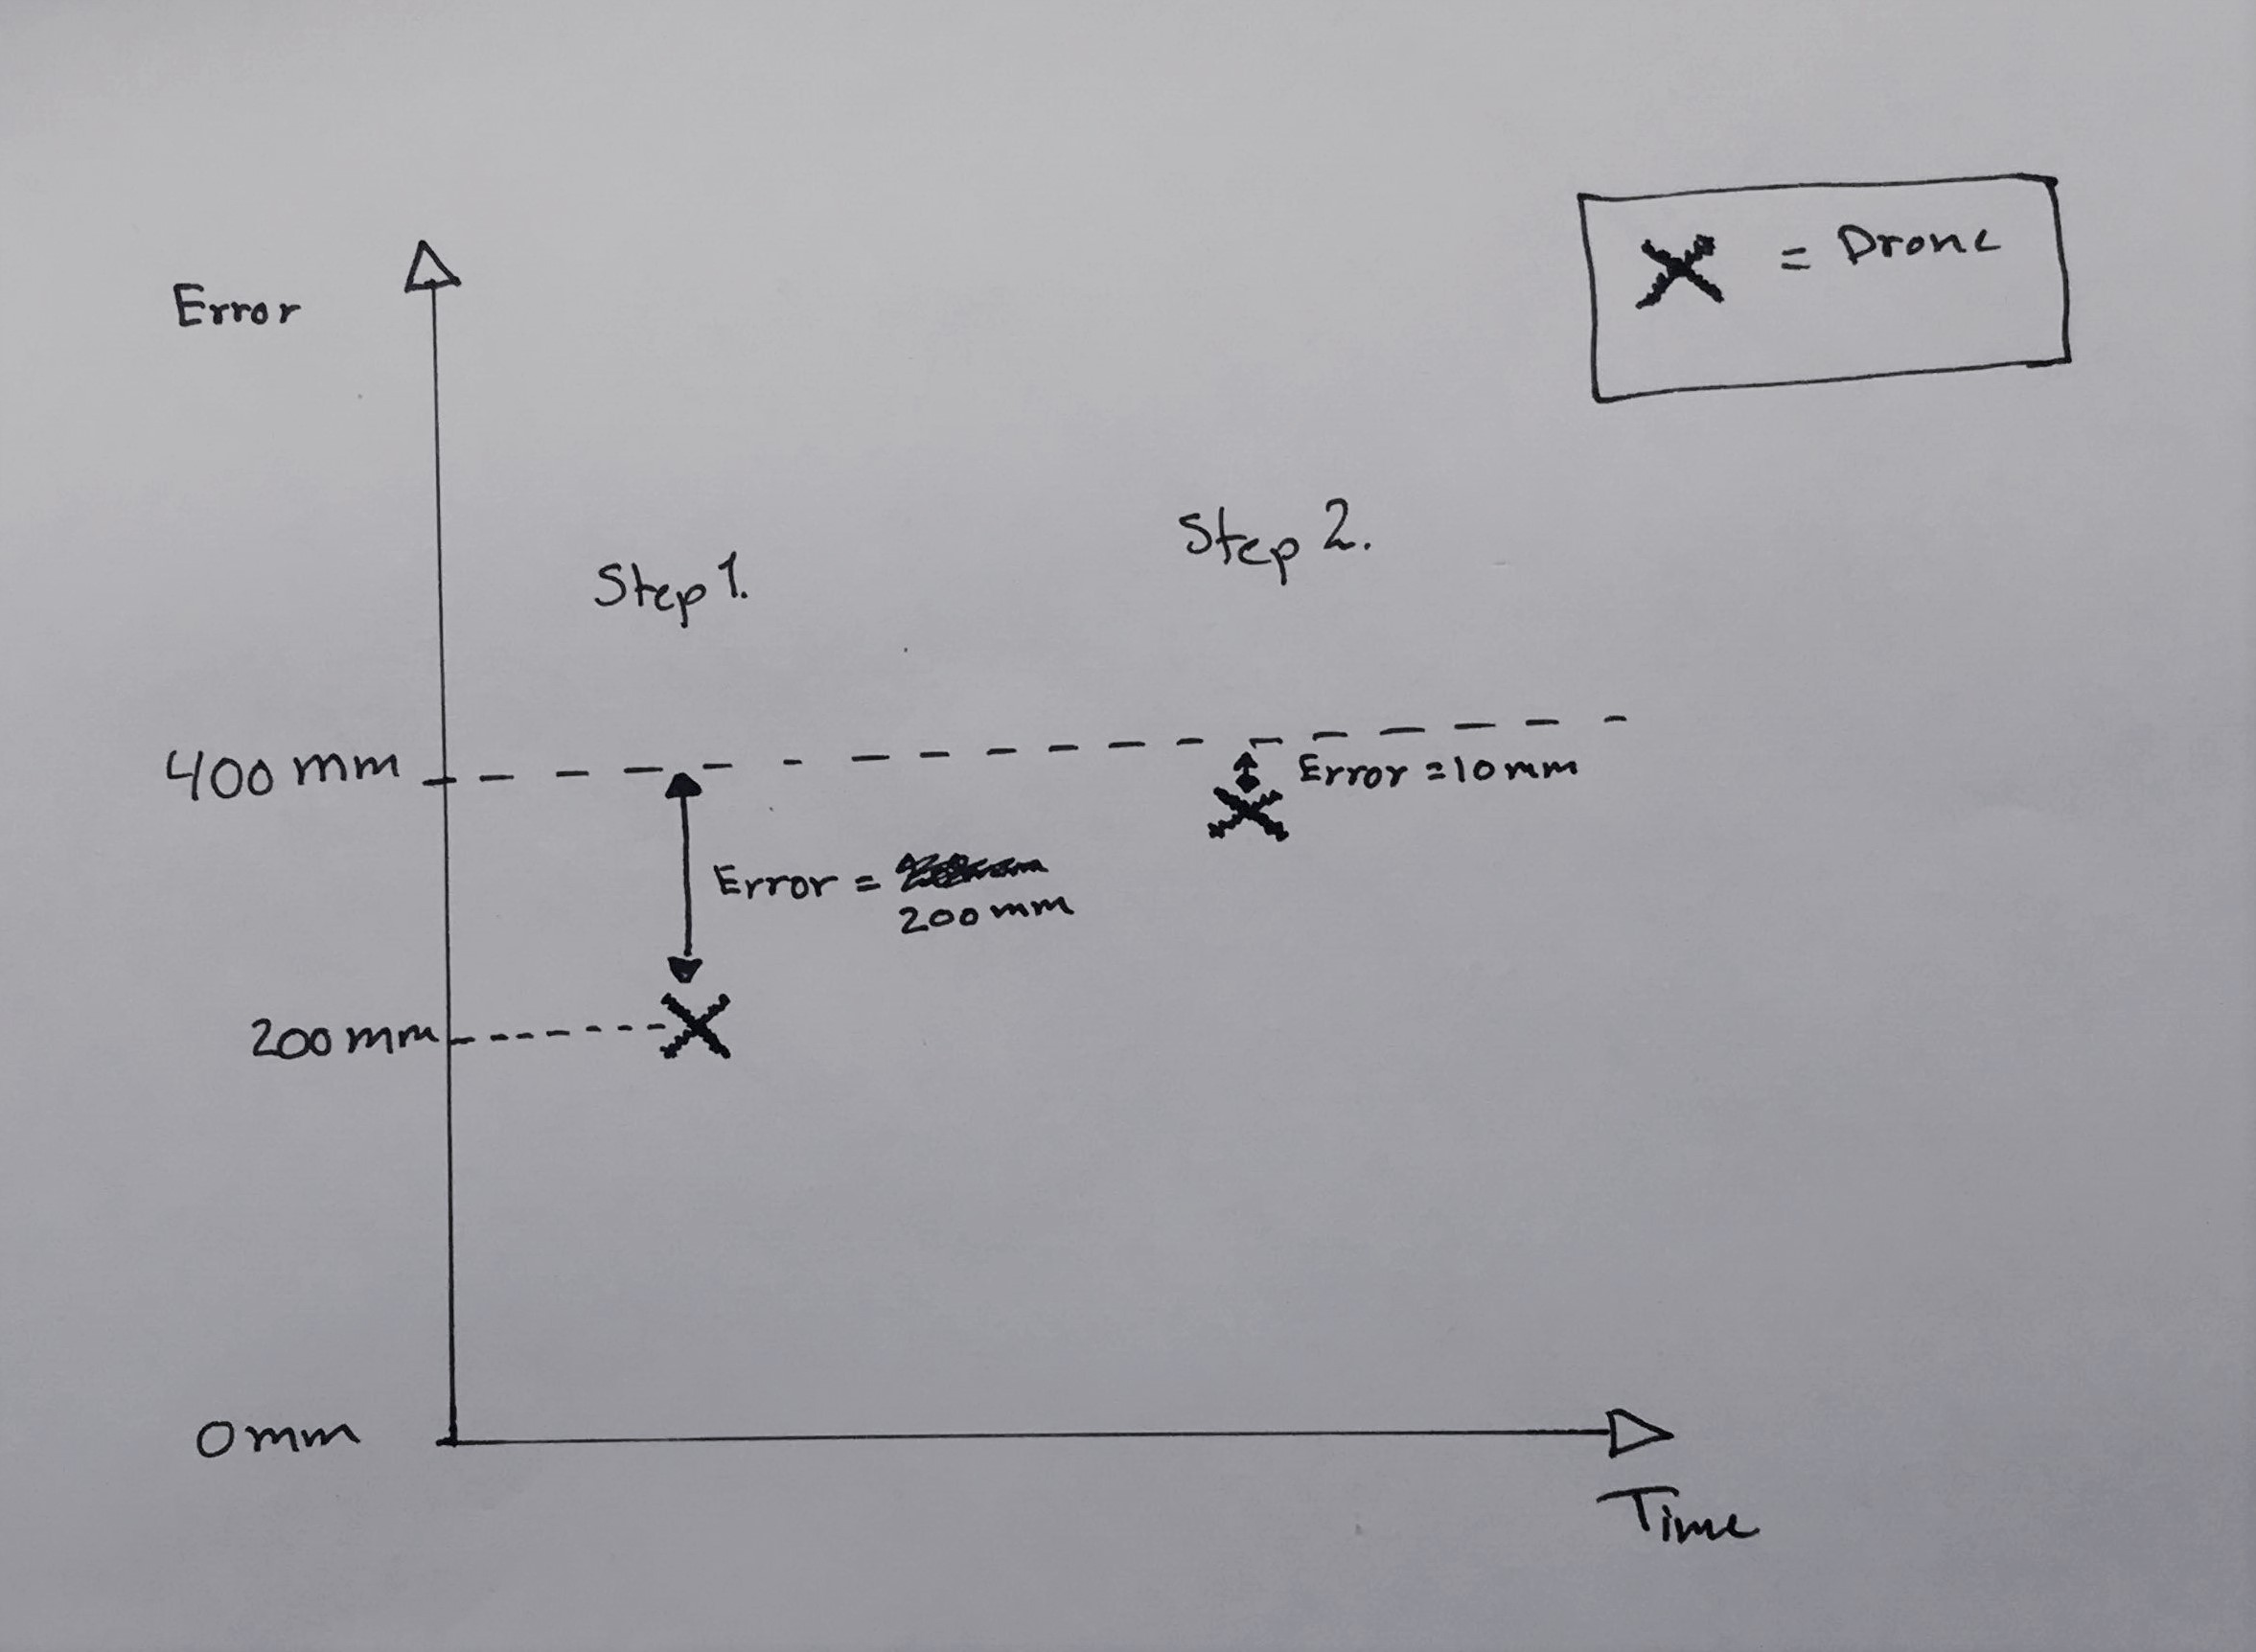 = Drone
Error
Step 1.
Step 2.
400 mm
Error = 10 mm
Error =
200 mm
200 mm
0 mm
Time